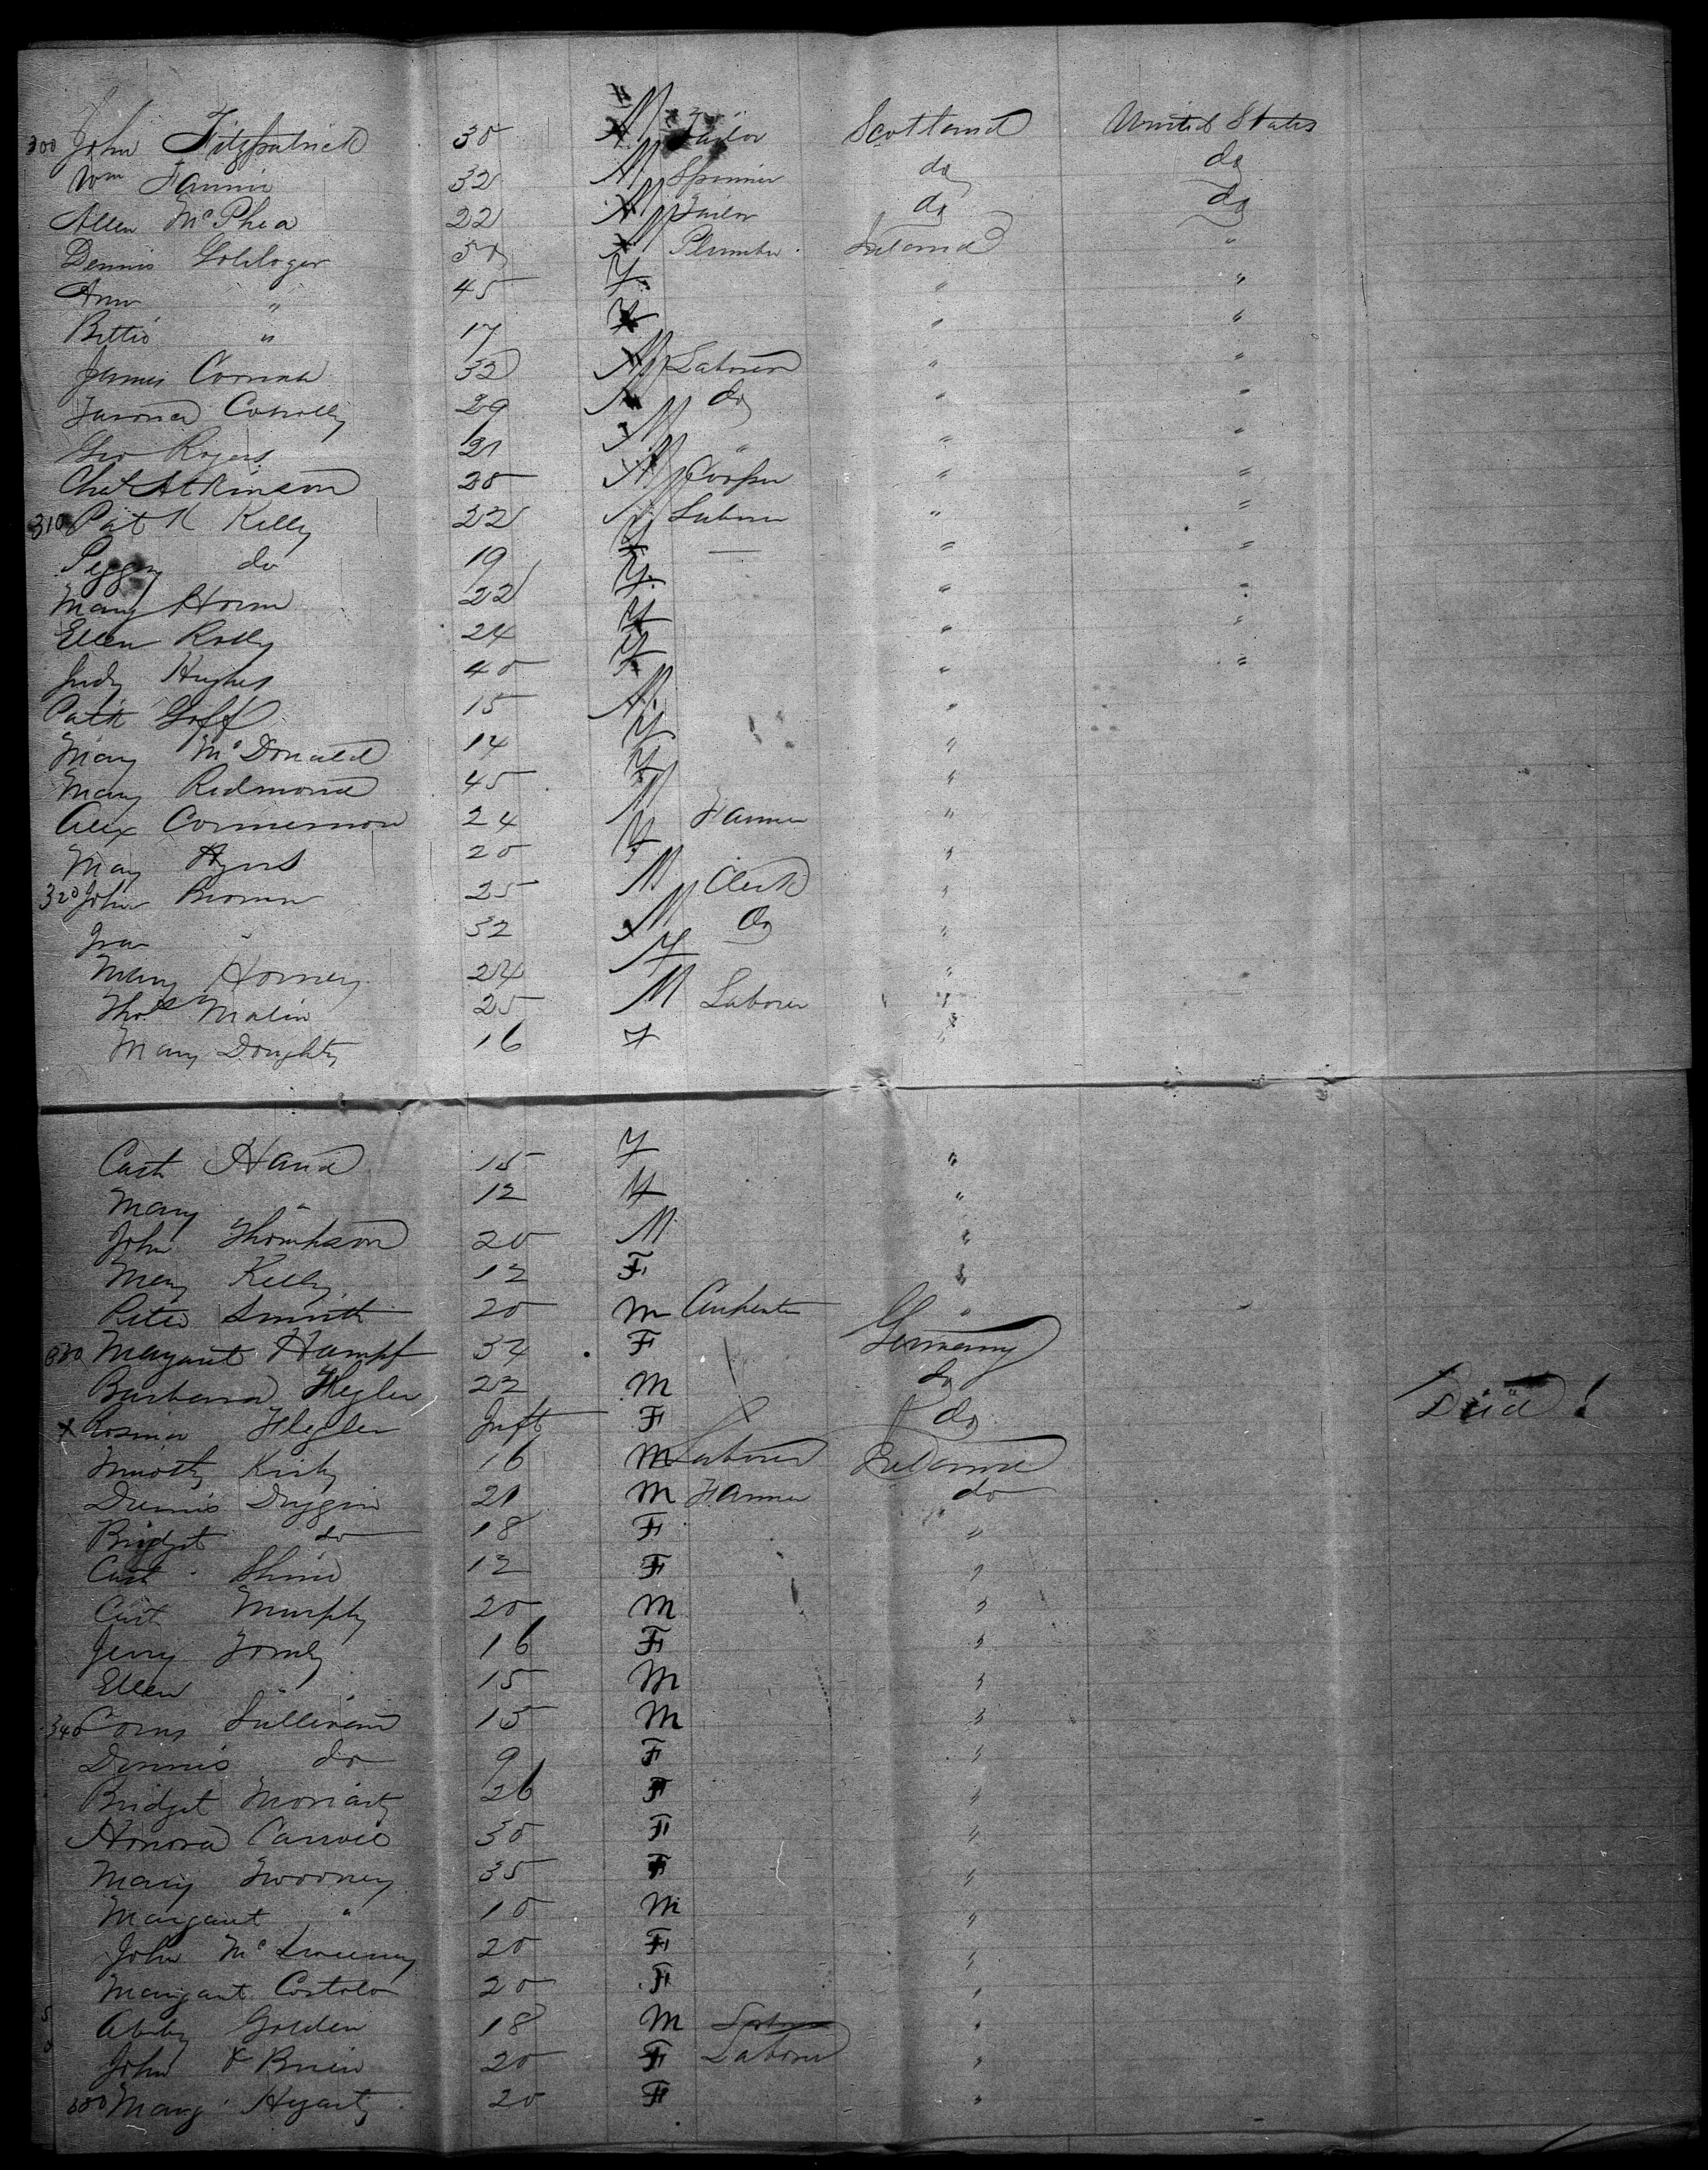 300 John Fitzpatrick 30 M Tailor Scotland United States
Wm Fannin 32 M Spinner do do
Allen McPhea 22 M Tailor do do
Dennis 50 M Plumber Ireland "
Ann " 45 F " "
Bettie " 17 F " "
James 32 M Laborer " "
Conolly 29 M do " "
Geo Rogers 21 M " " "
Chas Atkinson 28 M Cooper " "
310 Patk Kelly 22 M Laborer " "
Peggy do 19 F — " "
Mary Horm 22 F " "
Ellen Rolly 24 F " "
Judy Hughes 40 F " "
Patk Goff 15 M "
Mary McDonald 14 F "
Mary Redmond 45 F "
Alex 24 M Farmer "
Mary 20 F "
320 John Brown 25 M Clerk "
" 32 M Do "
Mary Horney 24 F "
Thos Malin 25 M Laborer "
Mary Doughty 16 F "
Cath Hand 15 F "
Mary " 12 F "
John Thompson 20 M "
Mary Kelly 12 F "
Peter Smith 20 M Carpenter "
330 Margaret Humpf 34 F Germany
Barbara Flegler 22 M do
x Rosina Flegler Inft F do Died!
Timothy Kirby 16 M Laborer Ireland
Dennis Duggin 21 M Farmer do
Bridget do 18 F "
Cath 12 F "
Cath Murphy 20 M "
Jerry 16 F "
Ellen " 15 M "
340 Corns Sullivan 13 M "
Dennis do 9 F "
Bridget Moriarty 26 F "
Honora 30 F "
Mary Twooney 35 F "
Margaret " 10 M "
John McSweeney 20 F "
Margaret Costolo 20 F "
Abby Golden 18 M "
John O Brien 20 F Laborer "
350 Mary Hegarty 20 F "